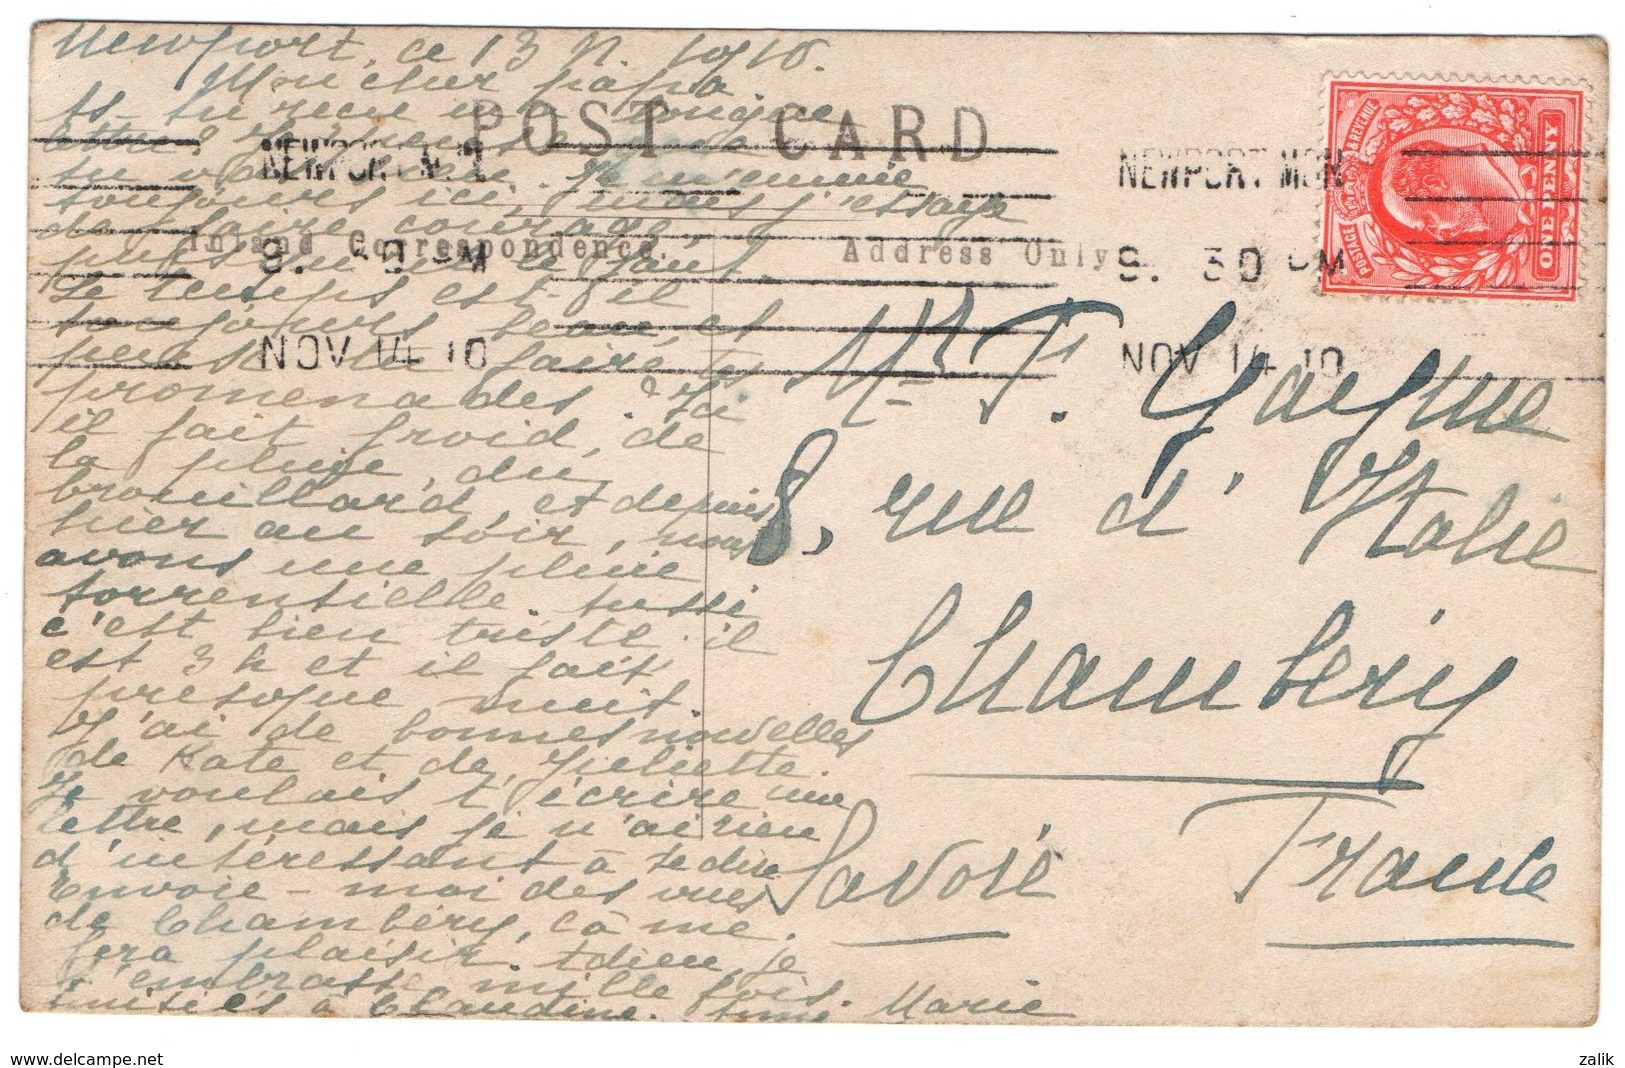 Newport, ce 13 N. 1910.
Mon cher papa
As-tu reçu ma longue
lettre?
tu vas bien. Je m'ennuie
toujours ici, mais j'essaye
de faire courage,
Le temps est-il
toujours beau, et
peux-tu faire tes
promenades? Ici
il fait froid, de
la pluie, du
brouillard, et depuis
hier au soir, nous
avons une pluie
torrentielle. Aussi
c'est bien triste. il
est 3 h et il fait
presque nuit.
J'ai de bonnes nouvelles
de Kate et de Juliette.
Je voulais t'écrire une
lettre, mais je n'ai rien
d'intéressant à te dire
Envoie-moi des vues
de Chambéry, çà me
fera plaisir. Adieu, je
t'embrasse mille fois.
Amitiés à Claudine. Marie
POST CARD
Inland Correspondence.
Address Only
NEWPORT MON
9. 30 PM
NOV 14 10
NEWPORT MON
9. 30 PM
NOV 14 10
POSTAGE & REVENUE
ONE PENNY
Mr F. Gaigne
8, rue d'Italie
Chambéry
Savoie France
www.delcampe.net
zalik